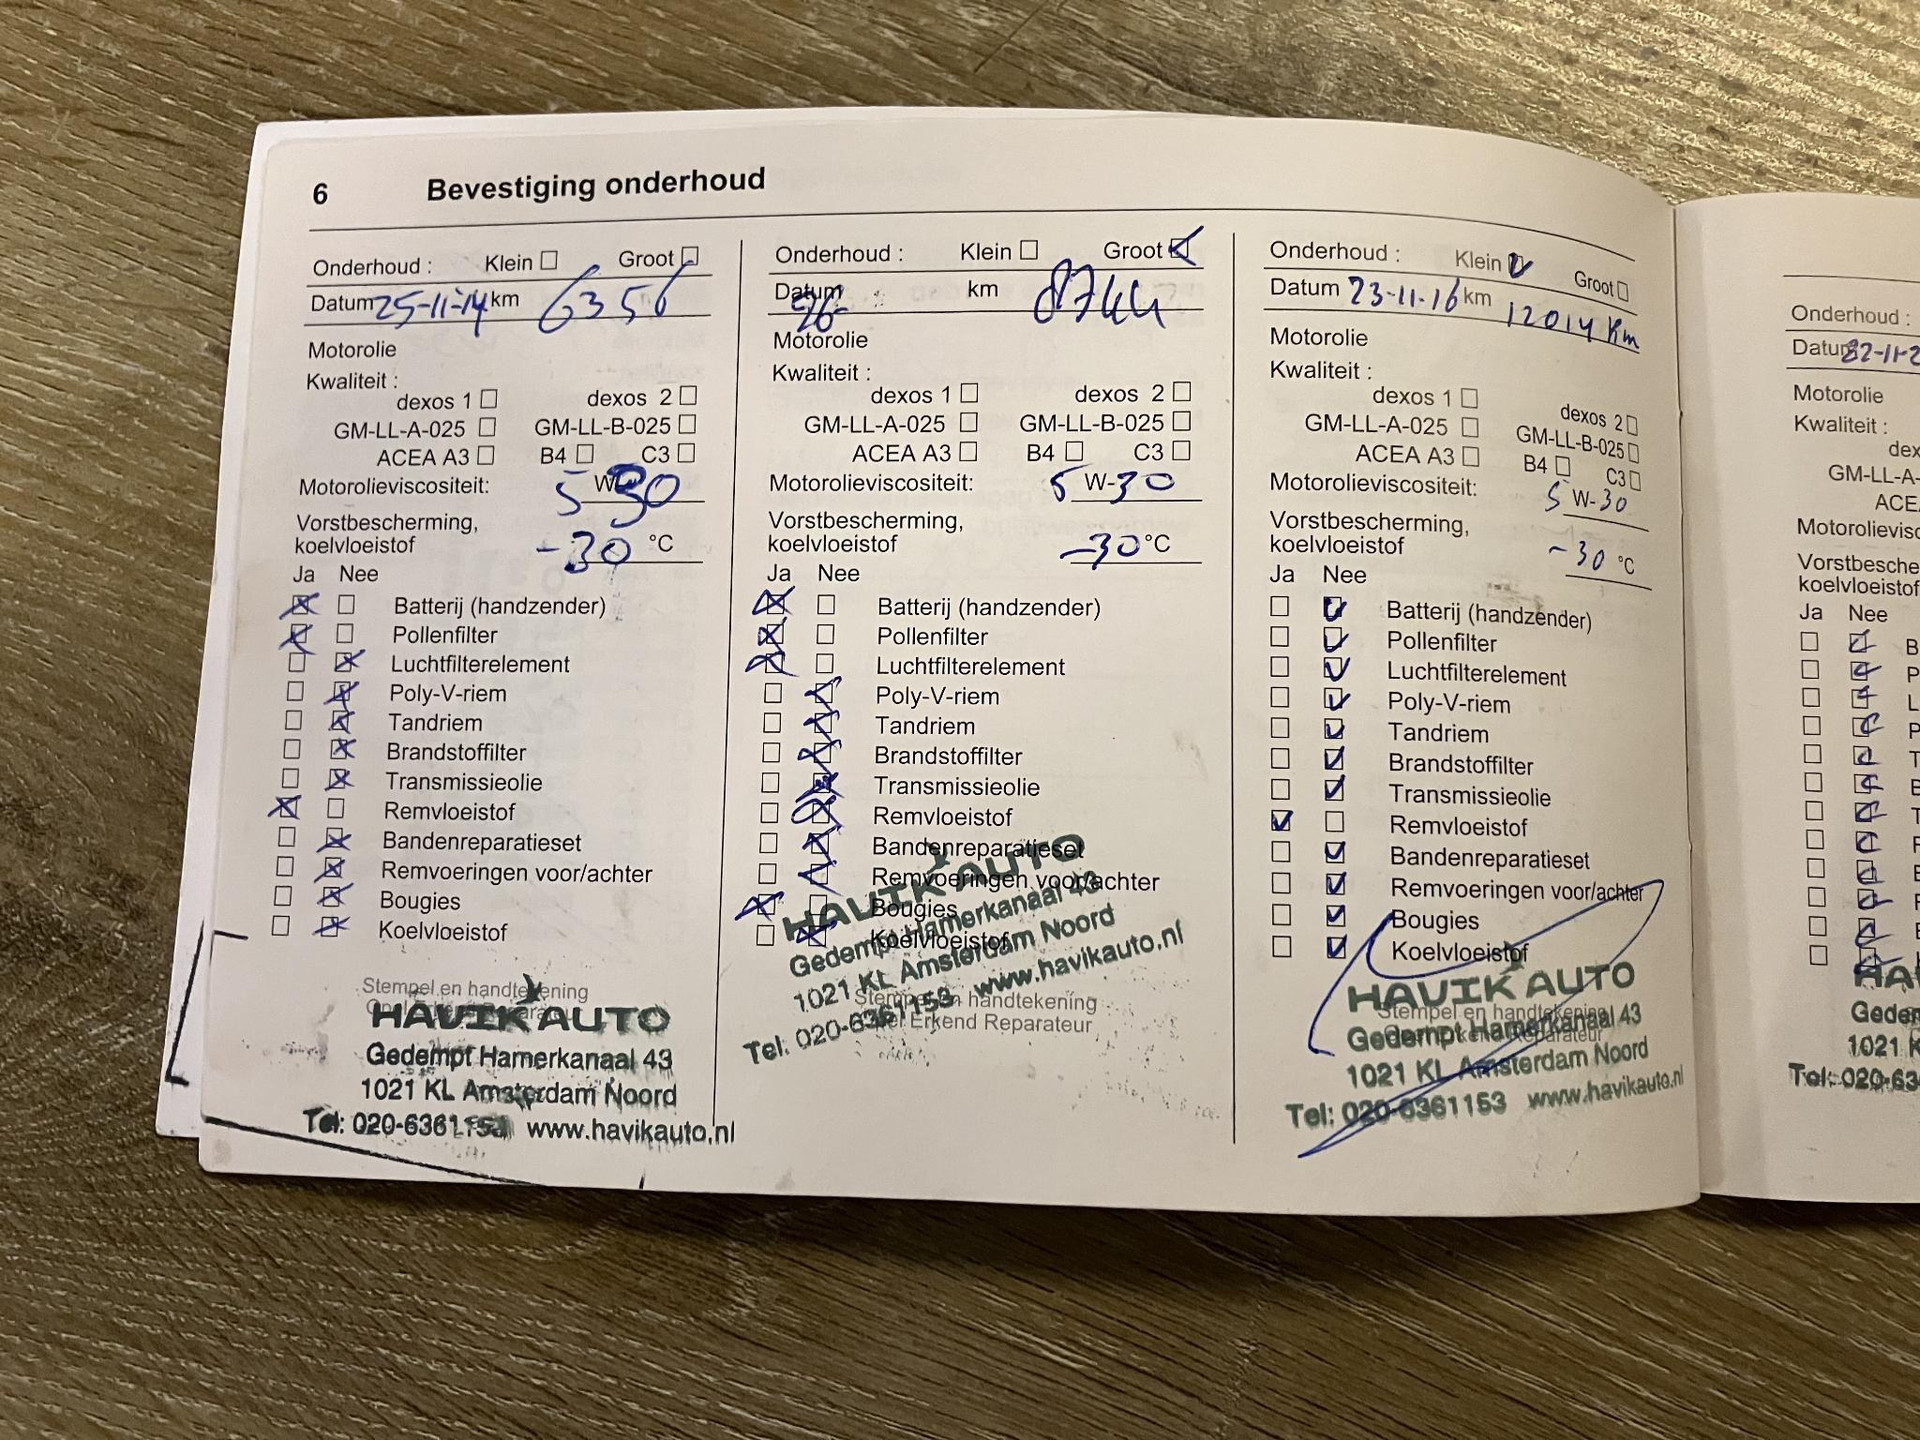 6 Bevestiging onderhoud
Onderhoud : Klein Groot
Datum 25-11-14 km 6356
Motorolie
Kwaliteit :
dexos 1 dexos 2
GM-LL-A-025 GM-LL-B-025
ACEA A3 B4 C3
Motorolieviscositeit: 5 W-30
Vorstbescherming,
koelvloeistof -30 °C
Ja Nee
Batterij (handzender)
Pollenfilter
Luchtfilterelement
Poly-V-riem
Tandriem
Brandstoffilter
Transmissieolie
Remvloeistof
Bandenreparatieset
Remvoeringen voor/achter
Bougies
Koelvloeistof
Stempel en handtekening
HAVIK AUTO
Gedempt Hamerkanaal 43
1021 KL Amsterdam Noord
Tel: 020-6361153 www.havikauto.nl
Onderhoud : Klein Groot
Datum 26- km 8744
Motorolie
Kwaliteit :
dexos 1 dexos 2
GM-LL-A-025 GM-LL-B-025
ACEA A3 B4 C3
Motorolieviscositeit: 5 W-30
Vorstbescherming,
koelvloeistof -30 °C
Ja Nee
Batterij (handzender)
Pollenfilter
Luchtfilterelement
Poly-V-riem
Tandriem
Brandstoffilter
Transmissieolie
Remvloeistof
Bandenreparatieset
Remvoeringen voor/achter
Bougies
Koelvloeistof
Stempel en handtekening
Opel Erkend Reparateur
HAVIK AUTO
Gedempt Hamerkanaal 43
1021 KL Amsterdam Noord
Tel: 020-6361153 www.havikauto.nl
Onderhoud : Klein Groot
Datum 23-11-16 km 12014 Km
Motorolie
Kwaliteit :
dexos 1 dexos 2
GM-LL-A-025 GM-LL-B-025
ACEA A3 B4 C3
Motorolieviscositeit: 5 W-30
Vorstbescherming,
koelvloeistof -30 °C
Ja Nee
Batterij (handzender)
Pollenfilter
Luchtfilterelement
Poly-V-riem
Tandriem
Brandstoffilter
Transmissieolie
Remvloeistof
Bandenreparatieset
Remvoeringen voor/achter
Bougies
Koelvloeistof
Stempel en handtekening
HAVIK AUTO
Gedempt Hamerkanaal 43
1021 KL Amsterdam Noord
Tel: 020-6361153 www.havikauto.nl
Onderhoud :
Datum
Motorolie
Kwaliteit :
dex
GM-LL-A-
ACE
Motorolievisc
Vorstbesche
koelvloeistof
Ja Nee
HA
Gedem
1021 K
Tel: 020-63